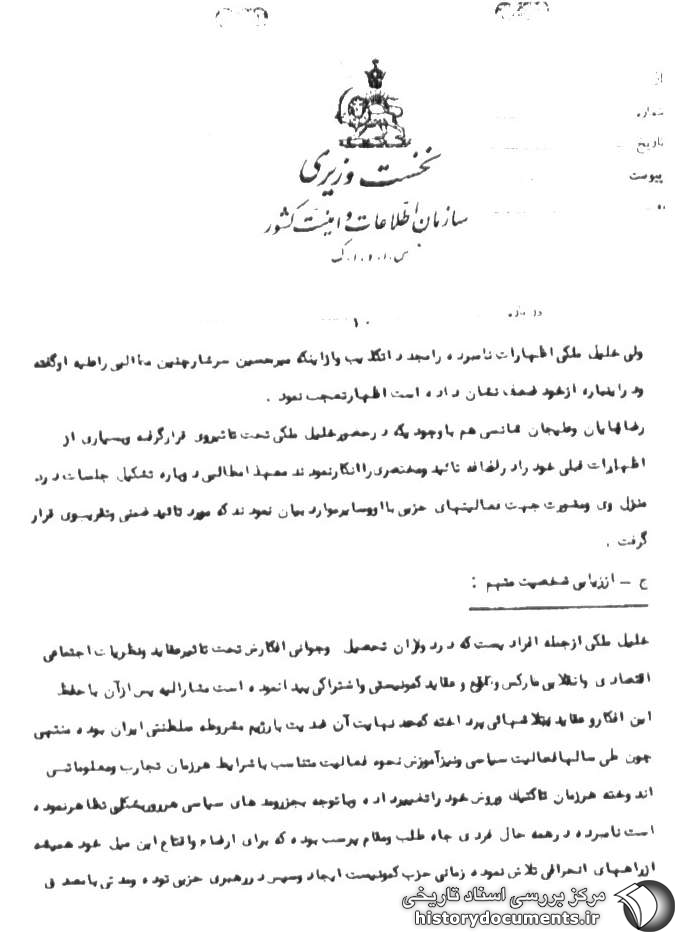 از
شماره
تاریخ
پیوست
نخست وزیری
سازمان اطلاعات و امنیت کشور
س.ا.و.ا.ک
درباره
۱۰
ولی خلیل ملکی اظهارات نامبرده را مجددا تکذیب و از اینکه میرحسین سرشار چنین مطالبی را علیه او گفته
و در اینباره از خود ضعف نشان داده است اظهار تعجب نمود .
رضا شایان و علیجان شانسی هم با وجودیکه در حضور خلیل ملکی تحت تاثیر وی قرار گرفته و بسیاری از
اظهارات قبلی خود را در لفافه تائید و مختصری را انکار نمودند معهذا مطالبی درباره تشکیل جلسات در
منزل وی و مشورت جهت فعالیتهای حزبی با او و سایر موارد بیان نمودند که مورد تائید ضمنی و تقریبی وی قرار
گرفت .
ج – ارزیابی شخصیت متهم :
خلیل ملکی از جمله افرادیست که در دوران تحصیل و جوانی افکارش تحت تاثیر عقاید و نظریات اجتماعی
اقتصادی و انقلابی مارکس و عقاید کمونیستی و اشتراکی پیدا نموده است مشارالیه پس از آن با حفظ
این افکار و عقاید به تلاشهائی پرداخته که حد نهایت آن ضدیت با رژیم مشروطه سلطنتی ایران بوده منتهی
چون طی سالها فعالیت سیاسی و نیز آموزش نحوه فعالیت متناسب با شرایط هر زمان تجارب و معلوماتی
اندوخته هر زمان تاکتیک و روش خود را تغییر داده و با توجه بجزر و مدهای سیاسی هر روز بشکلی تظاهر نموده
است نامبرده در همه حال فردی جاه طلب و مقام پرست بوده که برای ارضاء و اقناع این میل خود همیشه
از راههای انحرافی تلاش نموده زمانی حزب کمونیست ایجاد و سپس در رهبری حزبی توده و مدتی با مصدق
مرکز بررسی اسناد تاریخی
historydocuments.ir